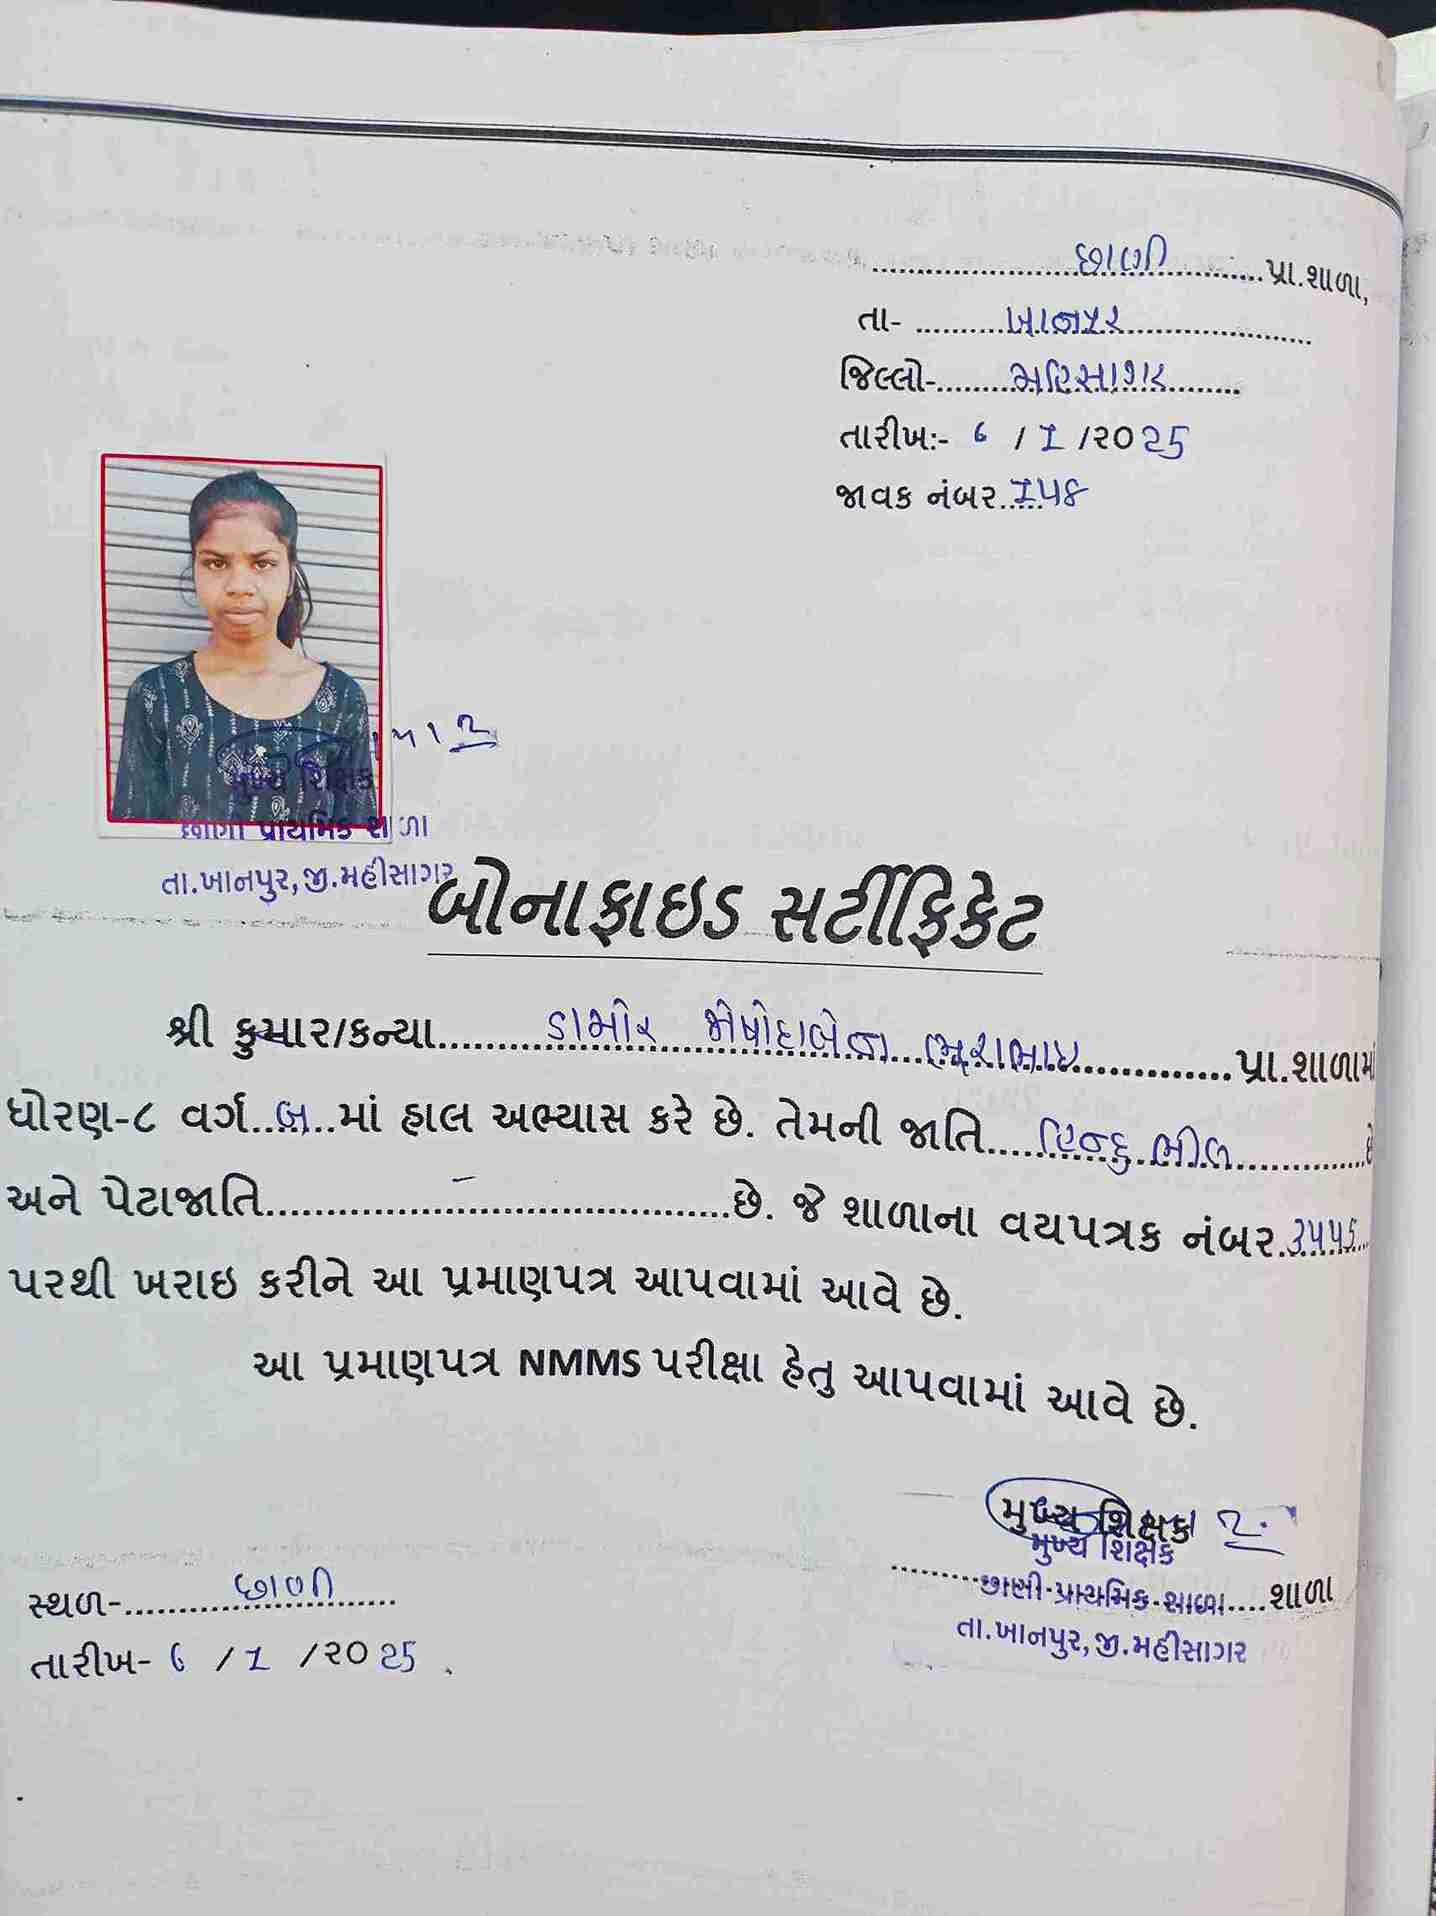 છાણી પ્રા.શાળા,
તા- ખાનપુર
જિલ્લો- મહિસાગર
તારીખ:- 6 / 1 /૨૦25
જાવક નંબર 148
મુખ્ય શિક્ષક
છાણી પ્રાથમિક શાળા
તા.ખાનપુર,જી.મહીસાગર
બોનાફાઇડ સર્ટીફિકેટ
શ્રી કુમાર/કન્યા ડામોર ભુરાભાઇ પ્રા.શાળામાં
ધોરણ-૮ વર્ગ બ માં હાલ અભ્યાસ કરે છે. તેમની જાતિ હિન્દુ ભીલ છે
અને પેટાજાતિ - છે. જે શાળાના વયપત્રક નંબર
પરથી ખરાઇ કરીને આ પ્રમાણપત્ર આપવામાં આવે છે.
આ પ્રમાણપત્ર NMMS પરીક્ષા હેતુ આપવામાં આવે છે.
મુખ્ય શિક્ષક
મુખ્ય શિક્ષક
છાણી પ્રાથમિક શાળા શાળા
તા.ખાનપુર,જી.મહીસાગર
સ્થળ- છાણી
તારીખ- 6 / 1 /૨૦25